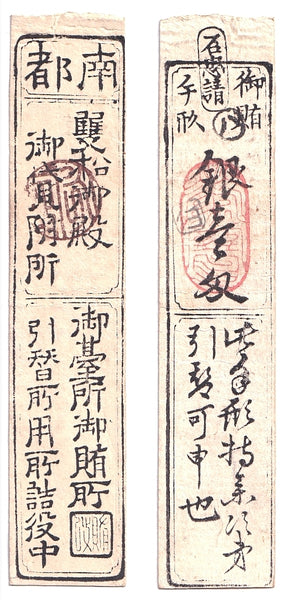 南都
襲松御殿
御貸附所
御臺所御賄所
引替所用所詰役中
石忠請
御賄
手形
銀壹匁
此手形持参次第
引替可申也